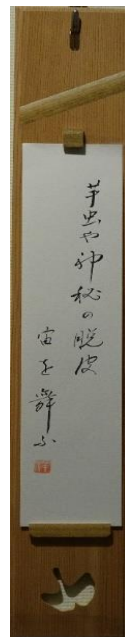 芋虫や神秘の脱皮
宙を舞ふ